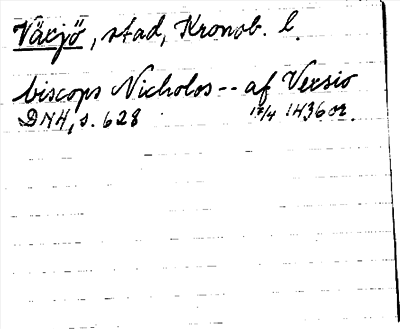 Växjö, stad, Kronob. l.
biscops Nicholos -- af Versio
DN4, s. 628 17/4 1436 or.